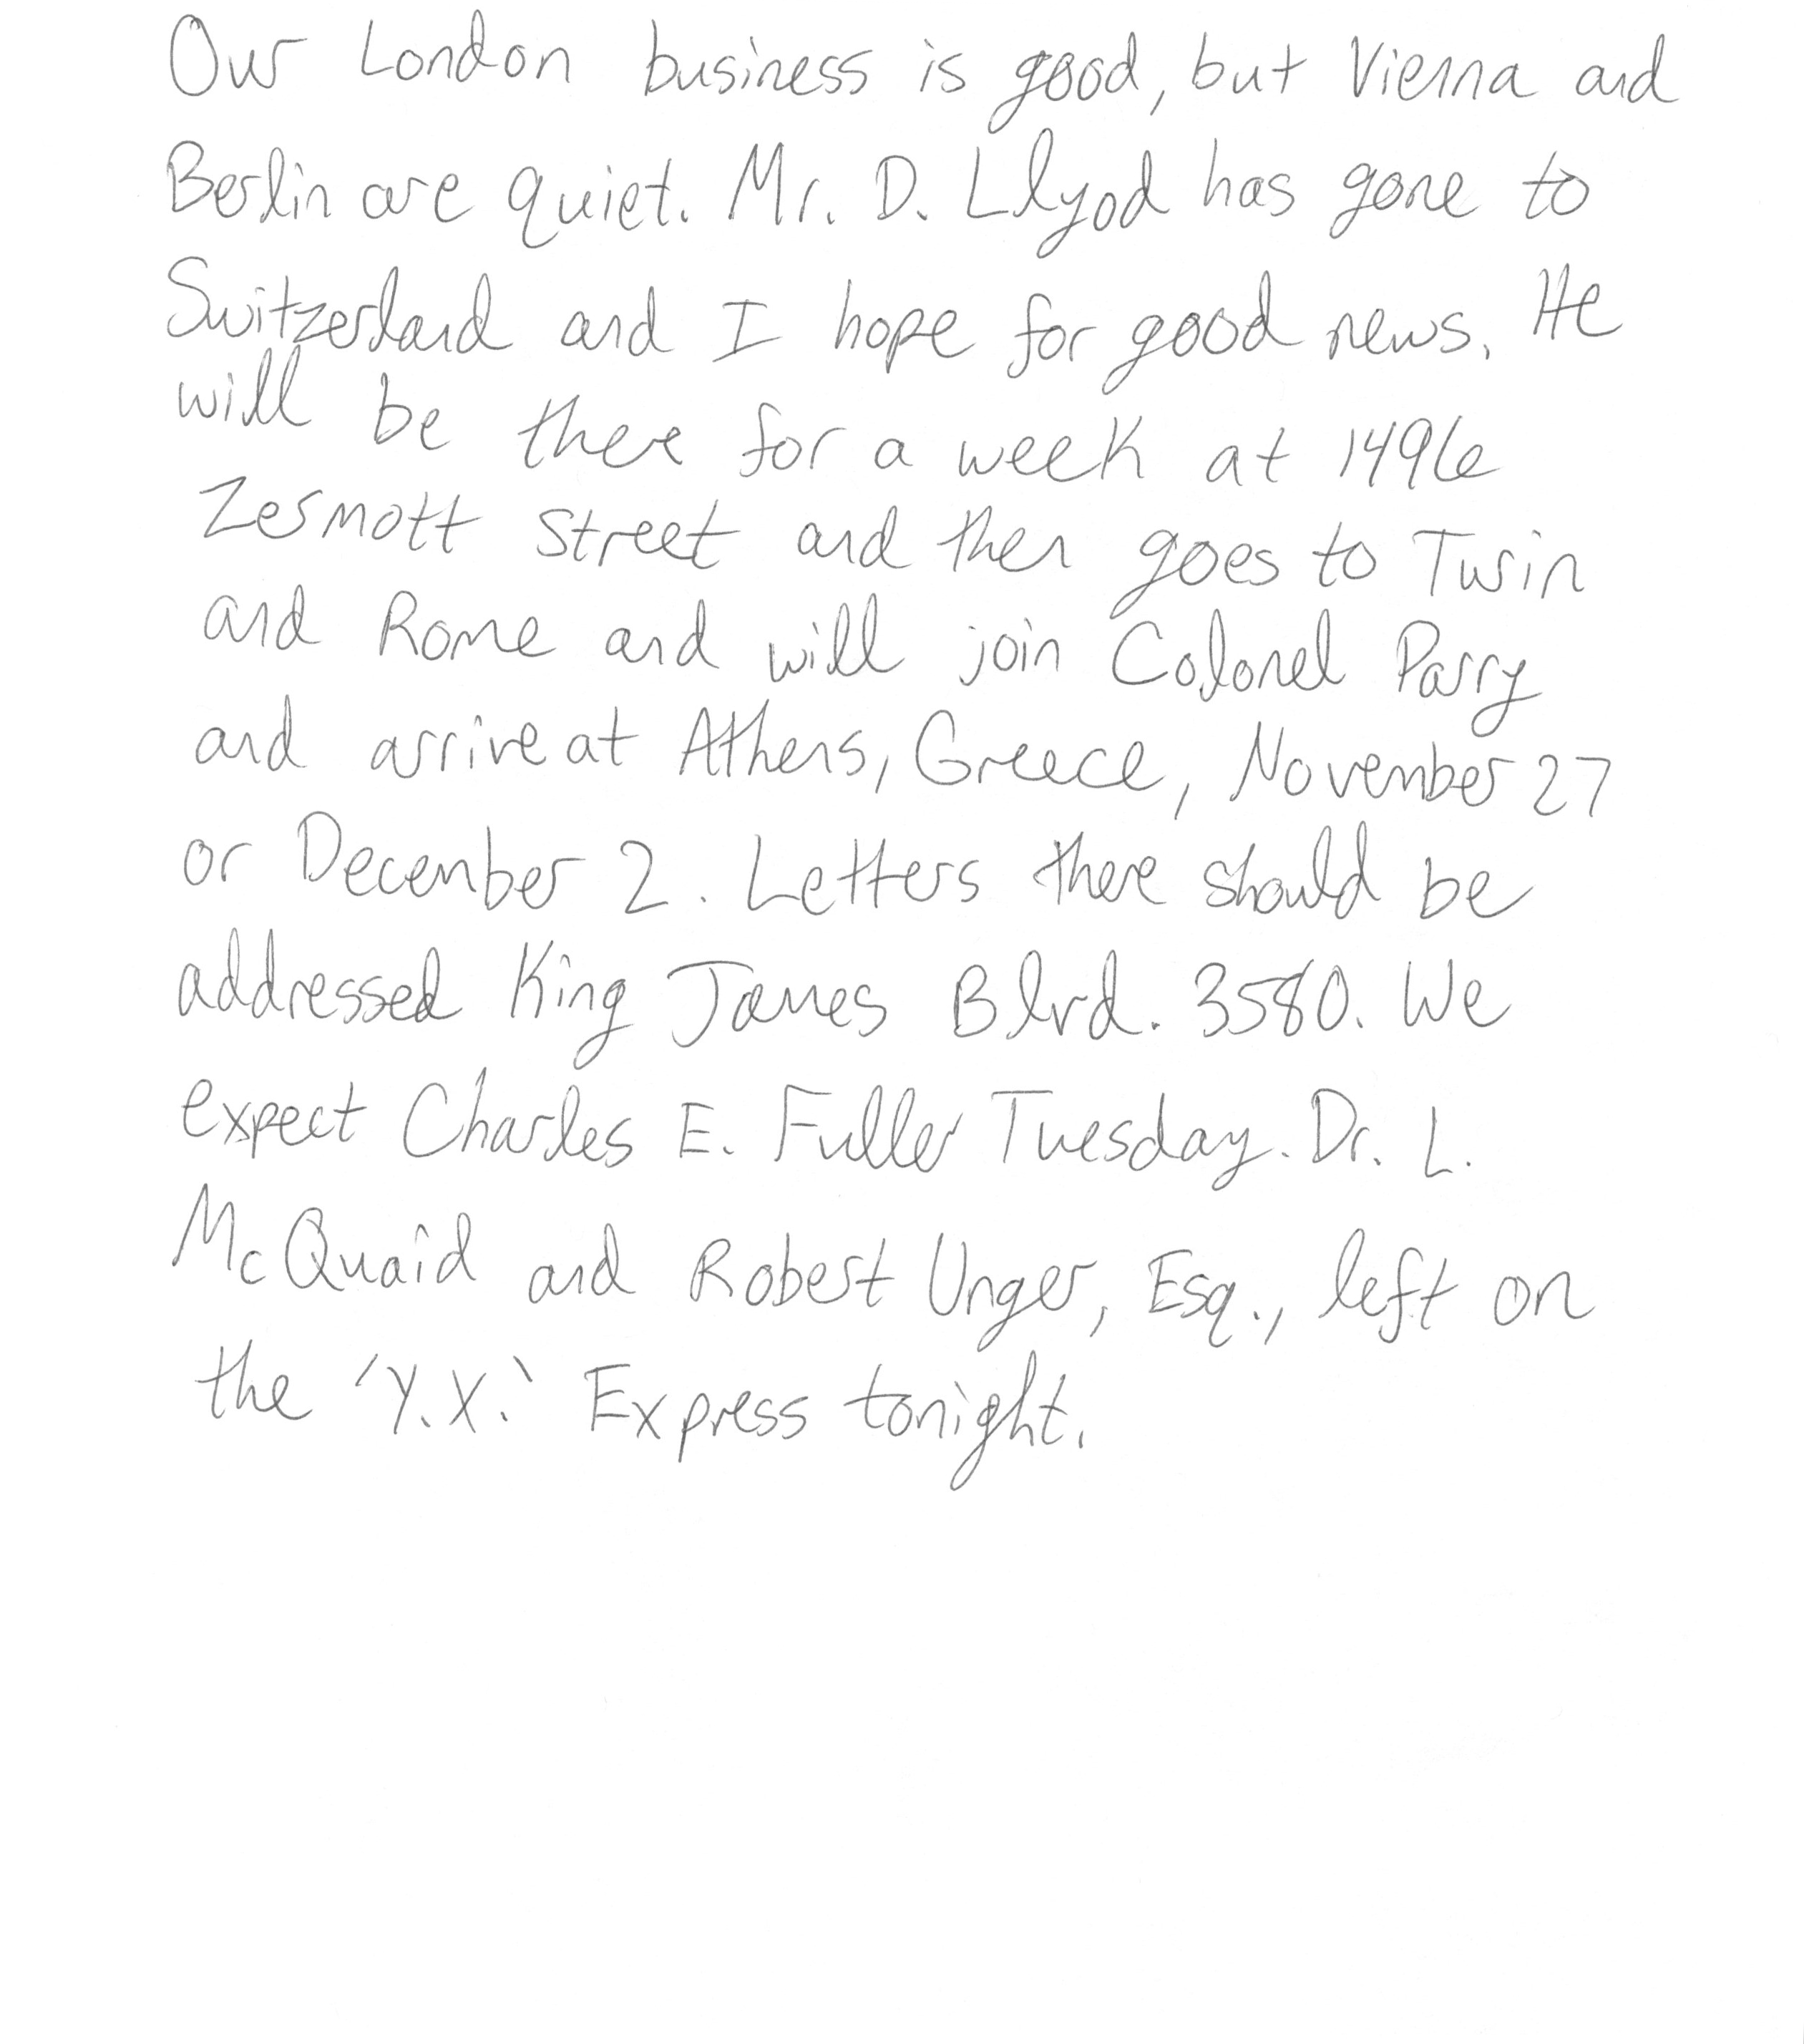 Our London business is good, but Vienna and
Berlin are quiet. Mr. D. Llyod has gone to
Switzerland and I hope for good news. He
will be there for a week at 1496
Zermott Street and then goes to Turin
and Rome and will join Colonel Parry
and arrive at Athens, Greece, November 27
or December 2. Letters there should be
addressed King James Blvd. 3580. We
expect Charles E. Fuller Tuesday. Dr. L.
McQuaid and Robert Unger, Esq., left on
the 'Y.X.' Express tonight.